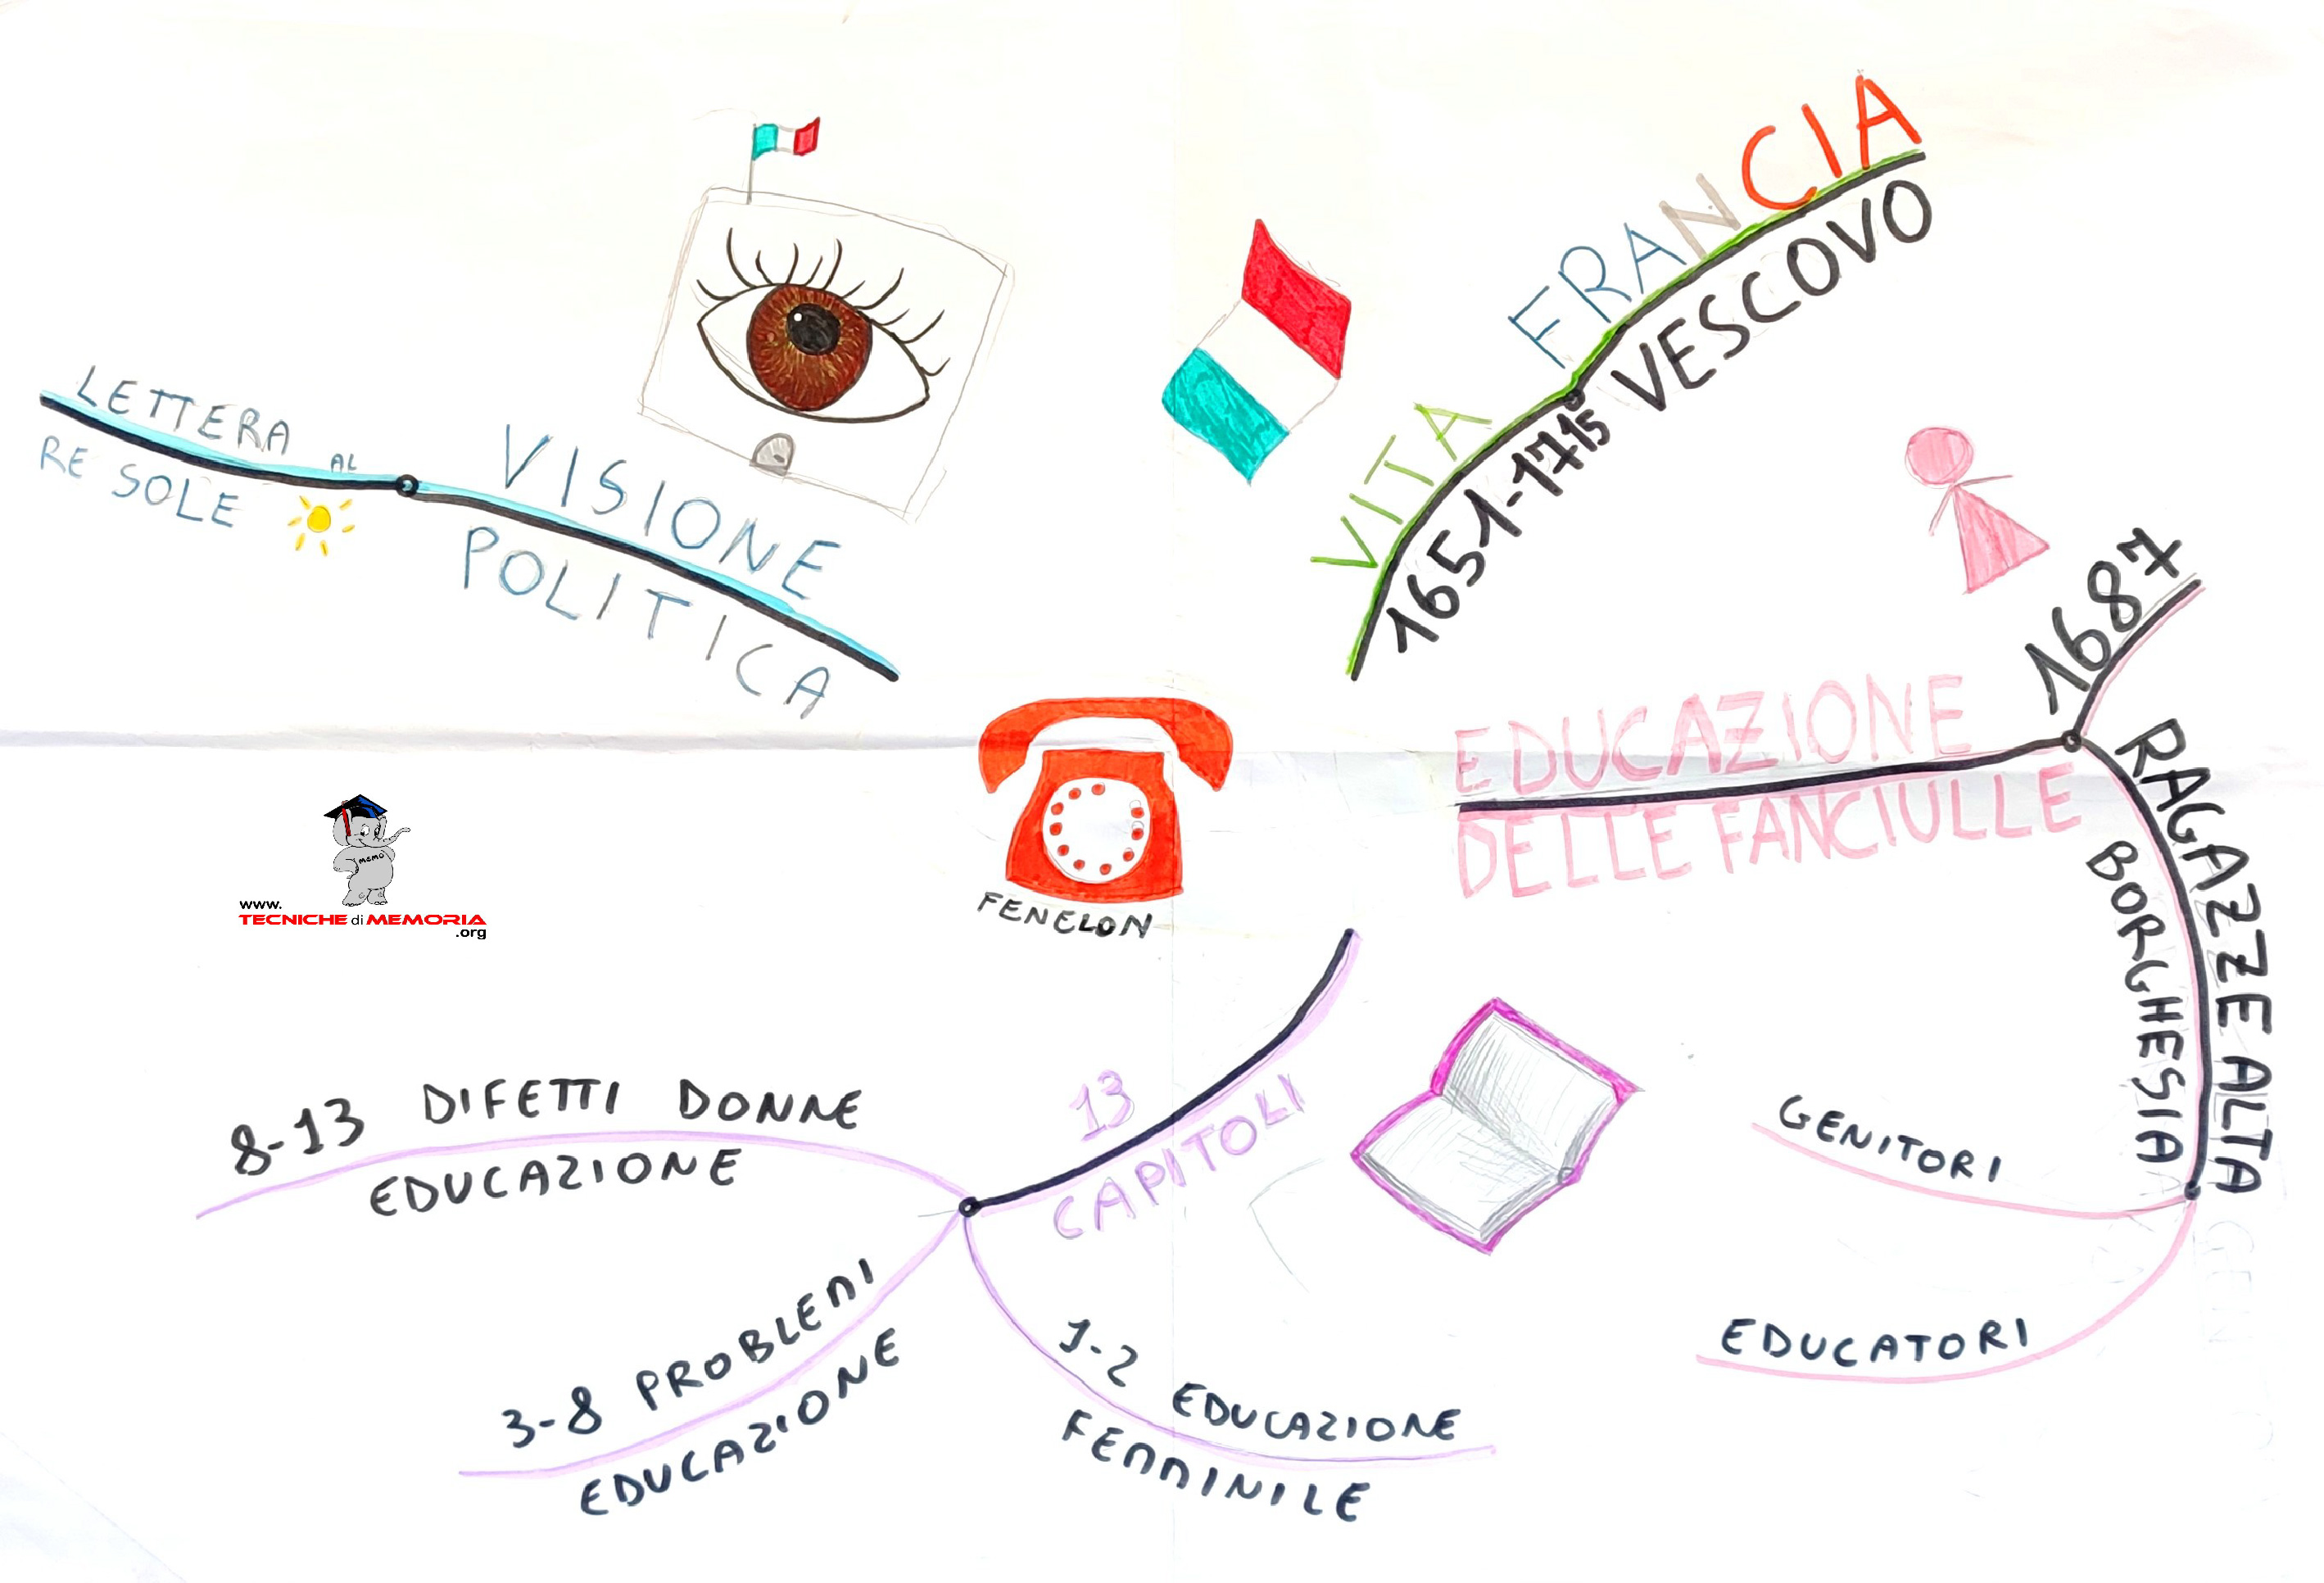 FRANCIA
VESCOVO
VITA
1651-1715
LETTERA AL
RE SOLE
VISIONE
POLITICA
1687
EDUCAZIONE
DELLE FANCIULLE
RAGAZZE ALTA
BORGHESIA
GENITORI
EDUCATORI
FENELON
www.
TECNICHE di MEMORIA
.org
MEMO
13
CAPITOLI
8-13 DIFETTI DONNE
EDUCAZIONE
3-8 PROBLEMI
EDUCAZIONE
1-2 EDUCAZIONE
FEMMINILE